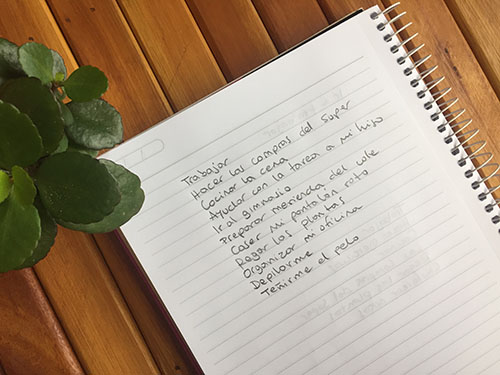 Trabajar
Hacer las compras del super
Cocinar la cena
Ayudar con la tarea a mi hijo
Ir al gimnasio
Preparar merienda del cole
Coser mi pantalón roto
Regar las plantas
Organizar mi oficina
Depilarme
Teñirme el pelo